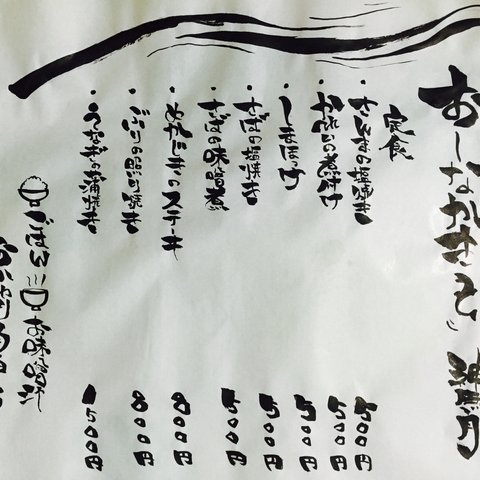 定食
・さんまの塩焼き 500円
・かれいの煮付け 500円
・しまほっけ 500円
・さばの塩焼き 500円
・さばの味噌煮 500円
・めかじきのステーキ 800円
・ぶりの照り焼き 800円
・うなぎの蒲焼き 1500円
ごはん お味噌汁